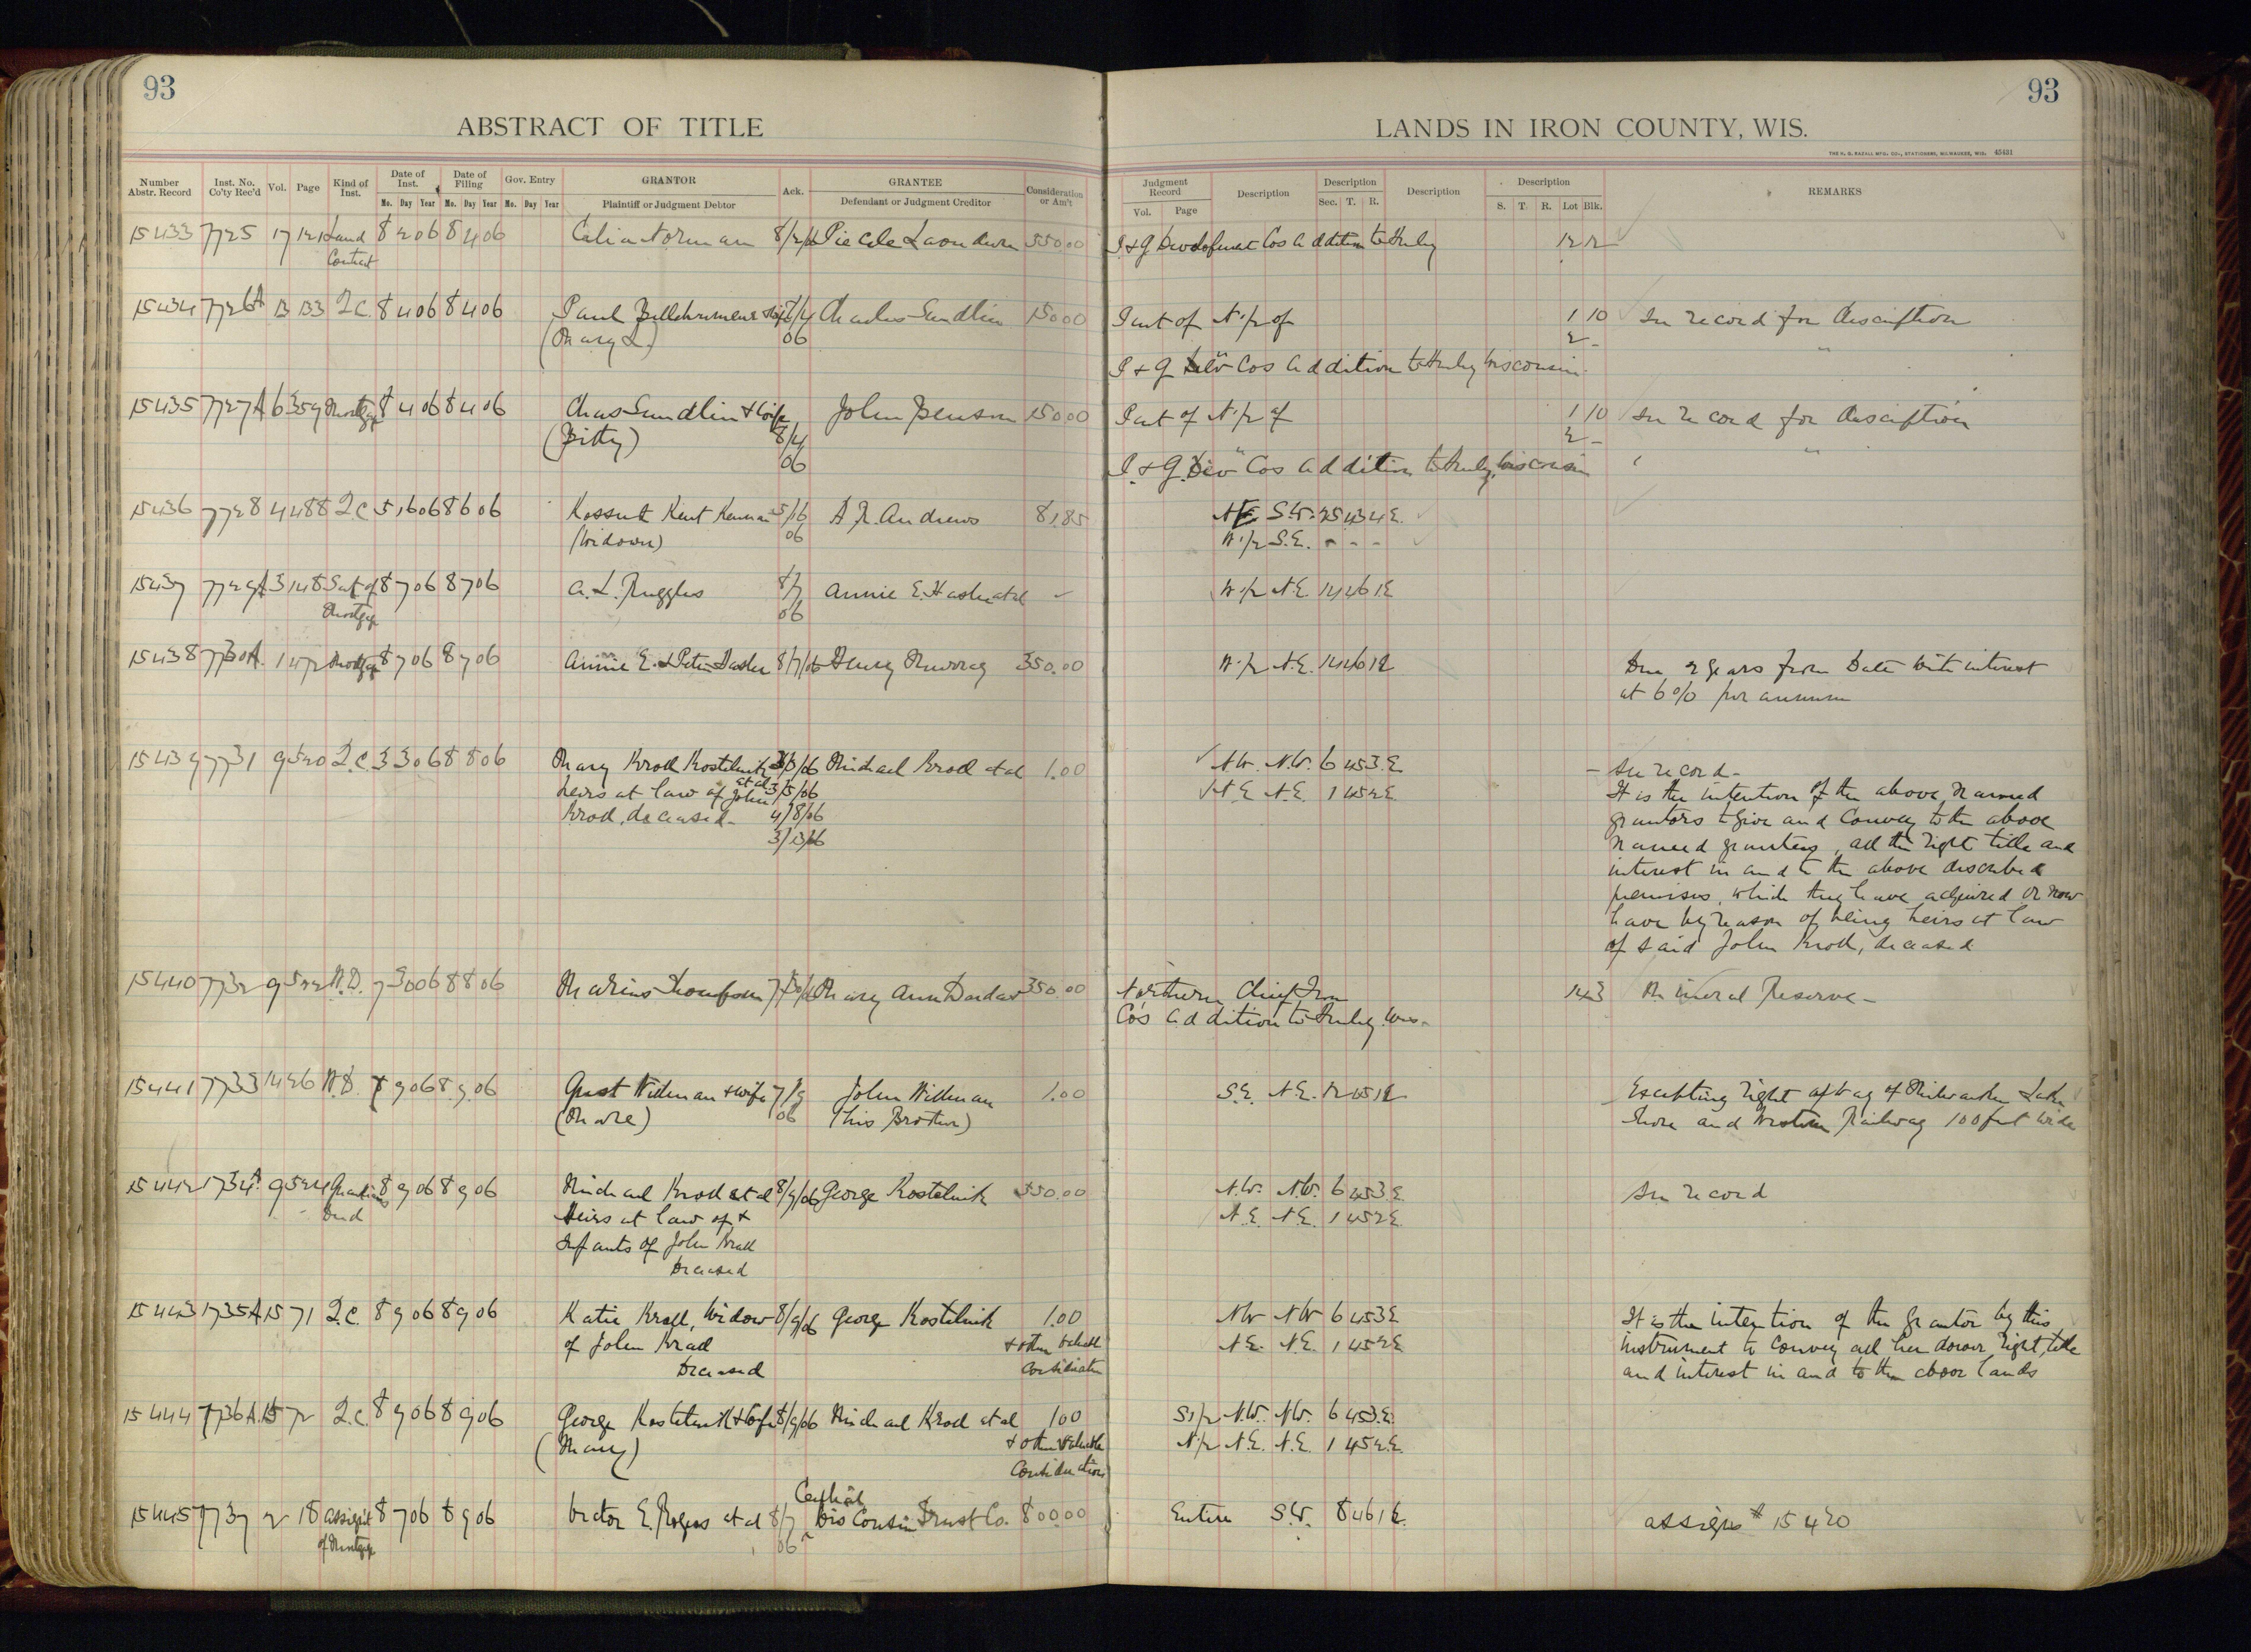 93
ABSTRACT OF TITLE
Number Abstr. Record Inst. No. Co'ty Rec'd Vol. Page Kind of Inst. Date of Inst. Date of Filing Gov. Entry GRANTOR Ack. GRANTEE Consideration or Am't
Mo. Day Year Mo. Day Year Mo. Day Year Plaintiff or Judgment Debtor Defendant or Judgment Creditor
15433 7725 17 121 Land 8 2 06 8 4 06 8/2/06 550.00
Contract
15434 7726A 13 133 Q.C. 8 4 06 8 4 06 Paul & wife 8/4 Charles Sundlin 150.00
(Mary L.) 06
15435 7727A 6 359 Mortgage 8 4 06 8 4 06 Chas Sundlin & Wife John Benson 150.00
(Bitty) 8/4
06
15436 7728 4 488 Q.C. 5 16 06 8 6 06 Kossuth Kent Kennan 5/16 A.R. Andrews 81.85
(Widower) 06
15437 7729A 3 148 Sat of 8 7 06 8 7 06 A.L. Ruggles 8/7 Annie E. Hasler et al
Mortgage 06
15438 7730A. 1 472 Mortgage 8 7 06 8 7 06 Annie E. & Peter Hasler 8/7/06 Henry Murray 350.00
15439 7731 9 520 Q.C. 3 3 06 8 8 06 Mary Kroll Kostelnik 3/3/06 Michael Kroll et al 1.00
et al 3/5/06
heirs at law of John
Kroll, deceased- 4/8/06
3/13/06
15440 7732 9 522 W.D. 7 30 06 8 8 06 Marius Thompson 7/30/06 Mary Ann 350.00
15441 7733 14 26 W.D. 8 9 06 8 9 06 Gust Willman & wife 7/9 John Willman 1.00
06 (his Brother)
15442 1734A. 9 524 Guardians 8 9 06 8 9 06 Michael Kroll et al 8/9/06 George Kostelnik 550.00
Deed Heirs at law of &
Infants of John Kroll
Deceased
15443 1735A 15 71 Q.C. 8 9 06 8 9 06 Katie Kroll, Widow 8/9/06 George Kostelnik 1.00
of John Kroll & other valuable
Deceased Consideration
15444 7736A. 15 72 Q.C. 8 9 06 8 9 06 George Kostelnik & Wife 8/9/06 Michael Kroll et al 1.00
(Mary) & other valuable
Consideration
Central
15445 7737 2 18 Assign't 8 7 06 8 9 06 Victor E. Rogers et al 8/7 Wisconsin Trust Co. 800.00
of Mortgage 06
93
LANDS IN IRON COUNTY, WIS.
THE H. G. RAZALL MFG. CO., STATIONERS, MILWAUKEE, WIS. 45431
Judgment Record Description Description Description Description REMARKS
Vol. Page Sec. T. R. S. T. R. Lot Blk.
I & G Development Cos Addition to Hurley 12 12
Part of N 1/2 of 1 10 See record for description
2 -
I & G Dev Cos Addition to Hurley Wisconsin "
Part of N 1/2 of 1 10 See record for description
2 -
I. & G. Dev Cos Addition to Hurley, Wisconsin "
NE S.W. 25 43 4 E.
W 1/2 S.E. - - -
W 1/2 N.E. 14 46 1 E
W 1/2 N.E. 14 46 1 E Due 2 years from Date with interest
at 6% per annum
N.W. N.W. 6 45 3.E. - See record -
N.E. N.E. 1 45 2 E. It is the intention of the above named
grantors to give and convey to the above
named grantees, all the right title and
interest in and to the above described
premises, which they have acquired or now
have by reason of being heirs at law
of said John Kroll, deceased
Northern Chief Iron 14 3 Mineral Reserve -
Co's Addition to Hurley Wis-
S.E. N.E. 12 45 1 E Excepting right of way of Milwaukee Lake
Shore and Western Railway 100 feet wide
N.W. N.W. 6 45 3.E. See record
N.E. N.E. 1 45 2 E.
NW NW 6 45 3 E It is the intention of the grantor by this
N.E. N.E. 1 45 2 E instrument to convey all her dower right, title
and interest in and to the above lands
S 1/2 N.W. NW. 6 45 3.E.
N 1/2 N.E. N.E. 1 45 2.E.
Entire S.W. 8 46 1 E. assigns # 15420